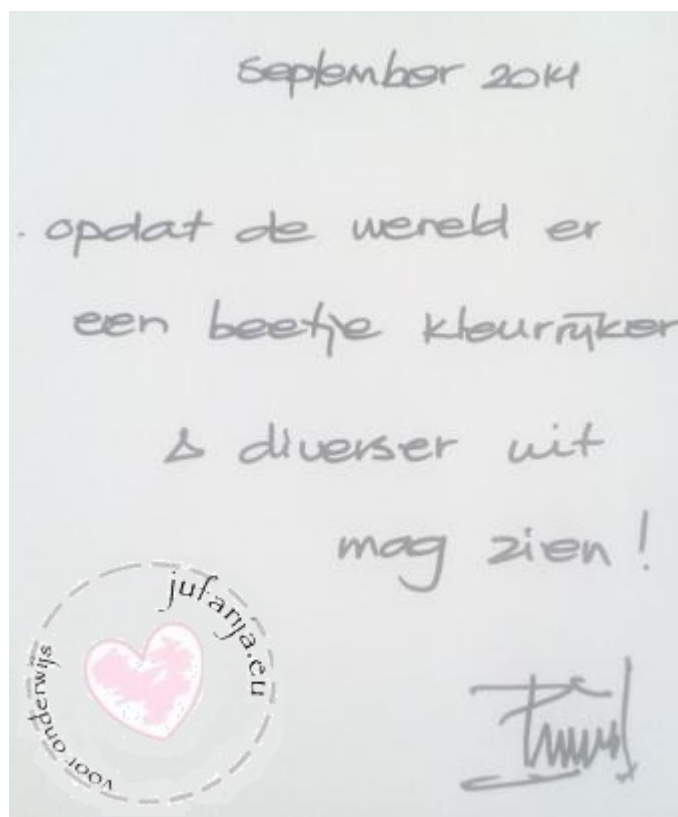 september 2014
. opdat de wereld er
een beetje kleurrijker
& diverser uit
mag zien!
jufanja.eu
voor onderwijs